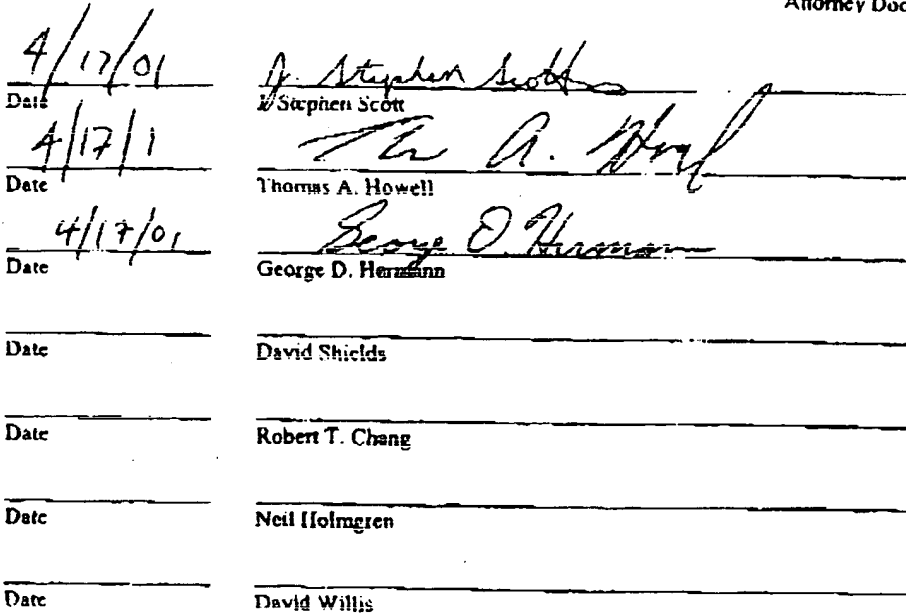 Attorney Doc
4/17/01 J. Stephen Scott
Date J Stephen Scott
4/17/1 A.
Date Thomas A. Howell
4/17/01 George D. Hermann
Date George D. Hermann
Date David Shields
Date Robert T. Chang
Date Neil Holmgren
Date David Willis